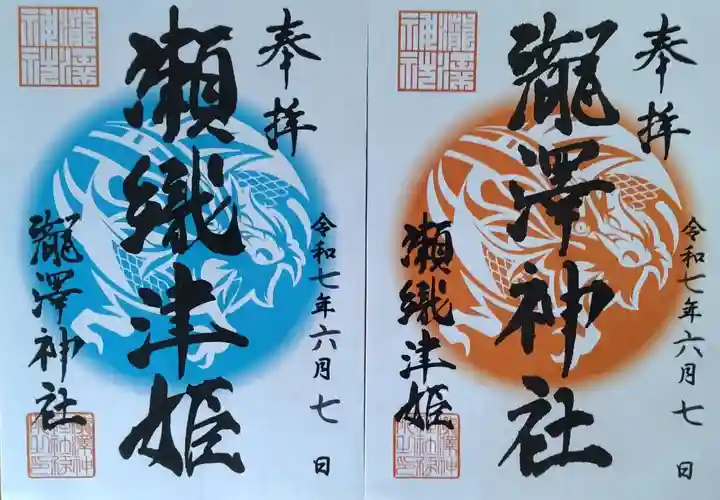 奉拝
瀬織津姫
瀧澤神社
令和七年六月七日
瀧澤神社
奉拝
瀧澤神社
瀬織津姫
令和七年六月七日
瀧澤神社